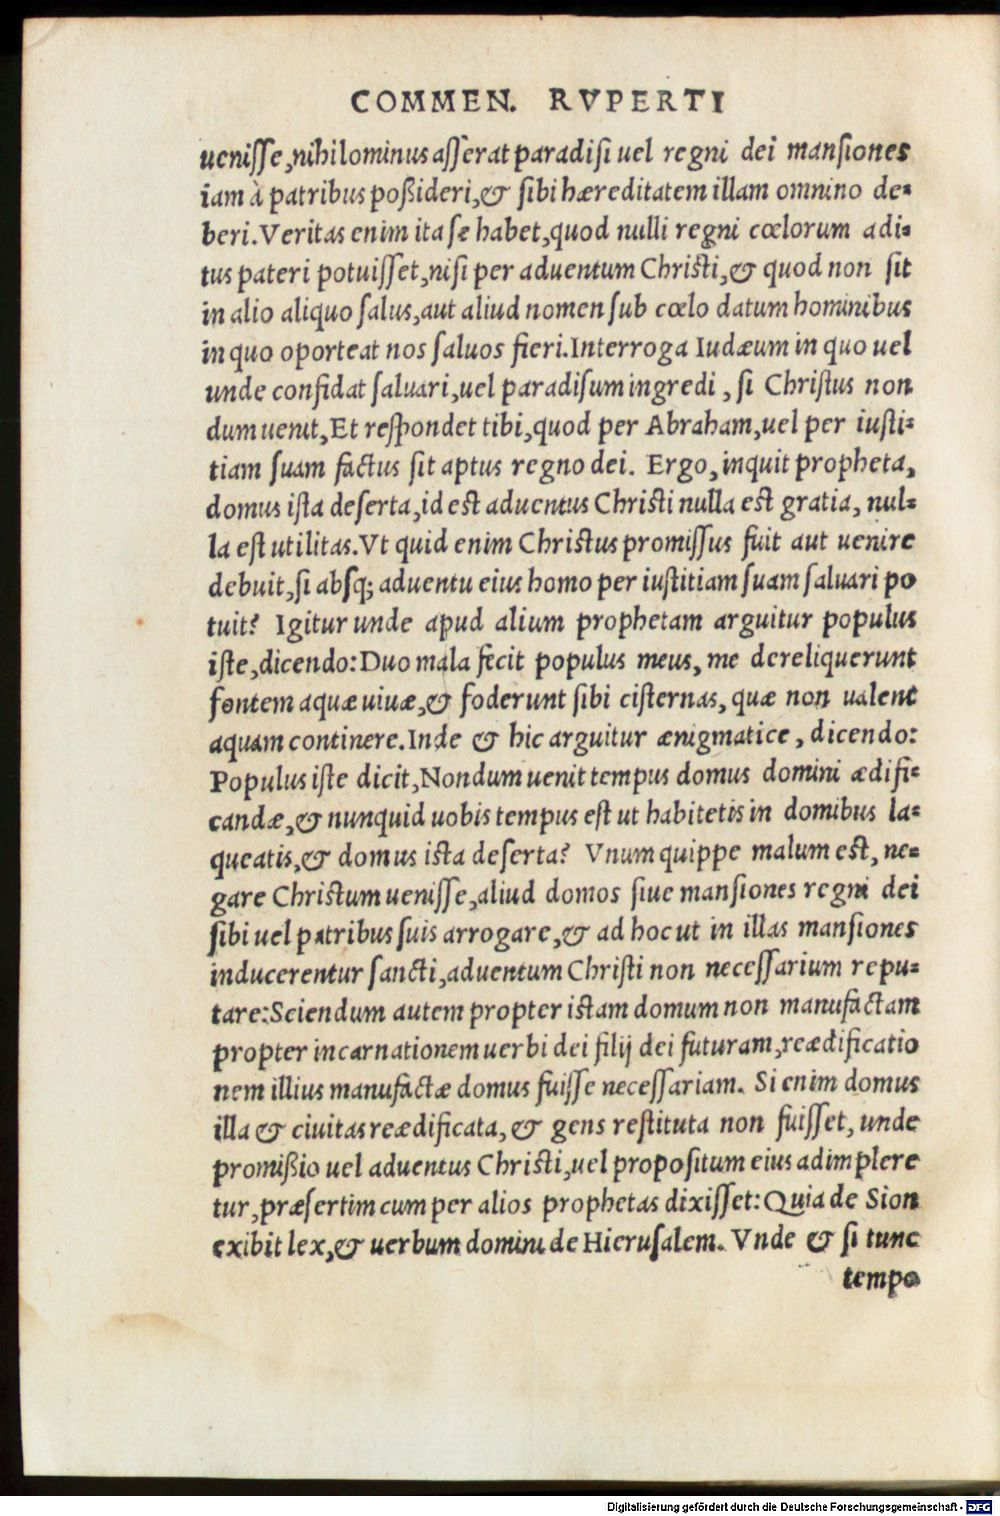 COMMEN. RVPERTI
uenisse, nihilominus asserat paradisi uel regni dei mansiones
iam à patribus poßideri, & sibi hæreditatem illam omnino de-
beri. Veritas enim ita se habet, quod nulli regni cœlorum adi-
tus pateri potuisset, nisi per aduentum Christi, & quod non sit
in alio aliquo salus, aut aliud nomen sub cœlo datum hominibus
in quo oporteat nos saluos fieri. Interroga Iudæum in quo uel
unde confidat saluari, uel paradisum ingredi, si Christus non
dum uenit, Et respondet tibi, quod per Abraham, uel per iusti-
tiam suam factus sit aptus regno dei. Ergo, inquit propheta,
domus ista deserta, id est aduentus Christi nulla est gratia, nul-
la est utilitas. Vt quid enim Christus promissus fuit aut uenire
debuit, si absq; aduentu eius homo per iustitiam suam saluari po
tuit? Igitur unde apud alium prophetam arguitur populus
iste, dicendo: Duo mala fecit populus meus, me dereliquerunt
fontem aquæ uiuæ, & foderunt sibi cisternas, quæ non ualent
aquam continere. Inde & hic arguitur ænigmatice, dicendo:
Populus iste dicit, Nondum uenit tempus domus domini ædifi-
candæ, & nunquid uobis tempus est ut habitetis in domibus la-
queatis, & domus ista deserta? Vnum quippe malum est, ne-
gare Christum uenisse, aliud domos siue mansiones regni dei
sibi uel patribus suis arrogare, & ad hoc ut in illas mansiones
inducerentur sancti, aduentum Christi non necessarium repu-
tare: Sciendum autem propter istam domum non manufactam
propter incarnationem uerbi dei filij dei futuram, reædificatio
nem illius manufactæ domus fuisse necessariam. Si enim domus
illa & ciuitas reædificata, & gens restituta non fuisset, unde
promißio uel aduentus Christi, uel propositum eius adimplere
tur, præsertim cum per alios prophetas dixisset: Quia de Sion
exibit lex, & uerbum domini de Hierusalem. Vnde & si tunc
tempo
Digitalisierung gefördert durch die Deutsche Forschungsgemeinschaft - DFG